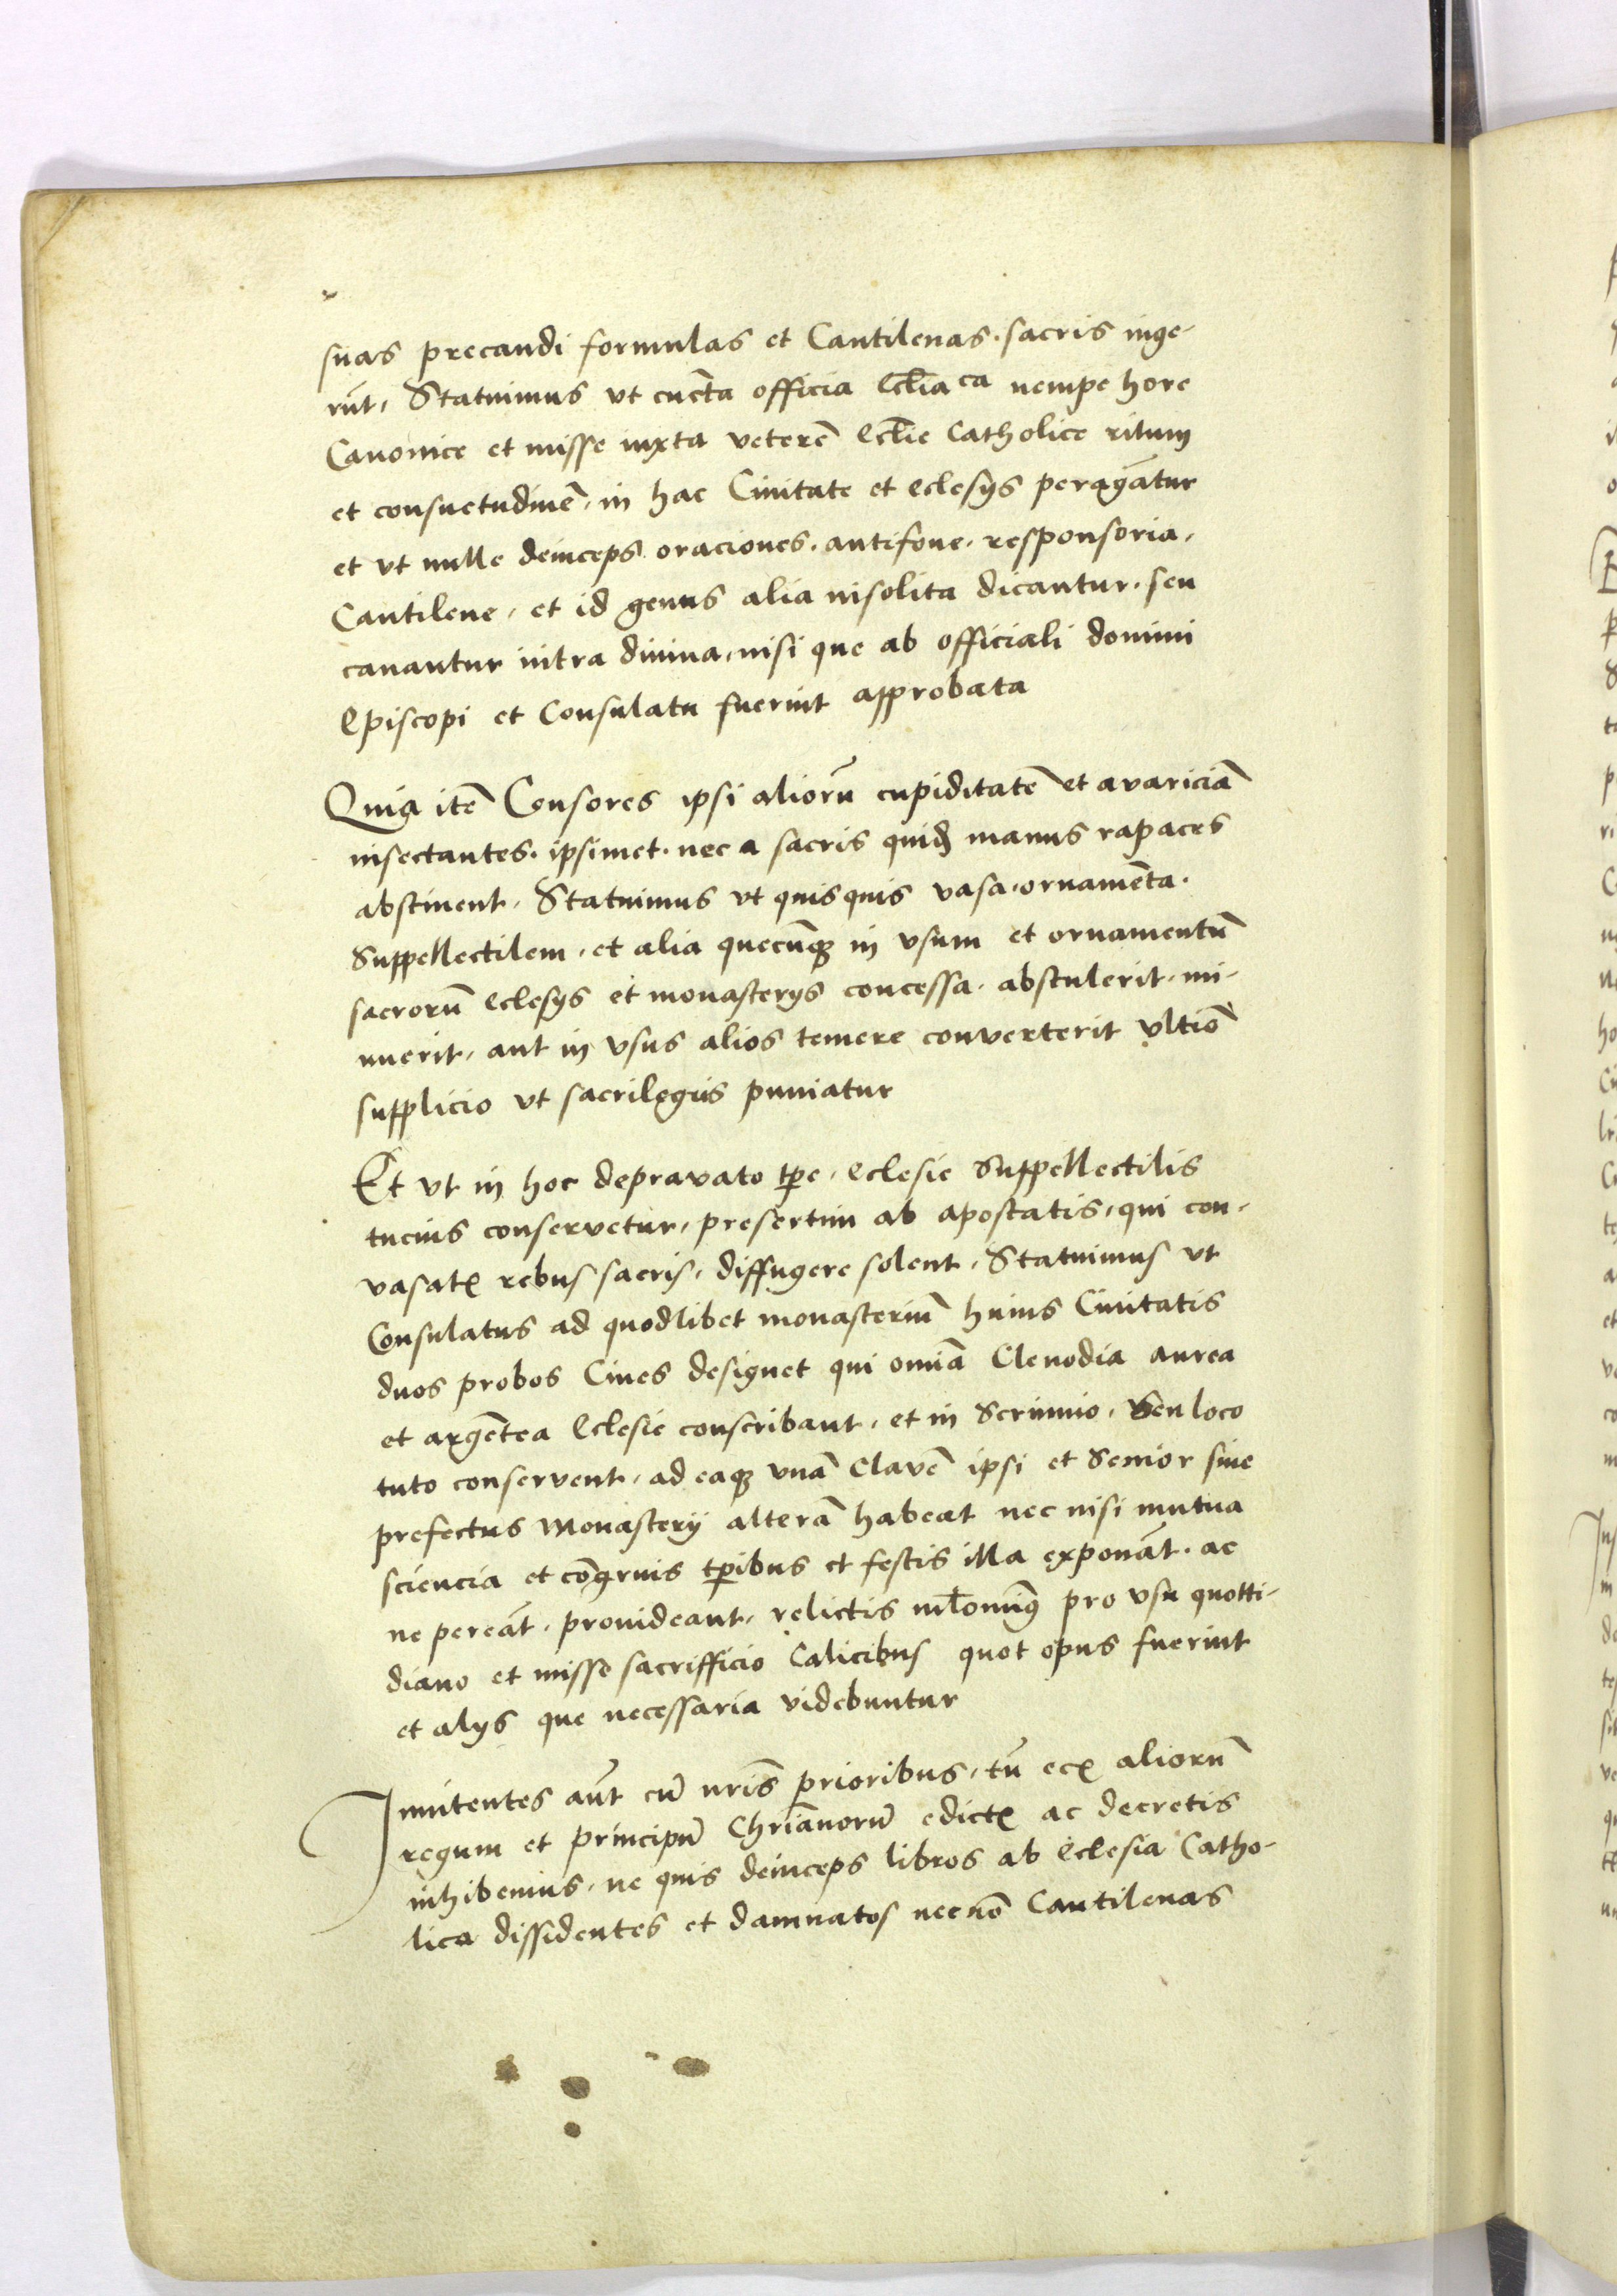 suas precandi formulas et Cantilenas. sacris inge-
rūt, Statuimus vt cūcta officia Ecclīaca nempe hore
Canonice et misse iuxta veterē Ecclīe Catholice ritum
et consuetudinē, in hac Ciuitate et eclesijs peragātur
et vt nulle deinceps oraciones. antifone. responsoria,
Cantilene, et id genus alia insolita dicantur. seu
canantur intra diuina, nisi que ab officiali domini
Episcopi et Consulatu fuerint approbata
Quia itē Censores ipsi aliorū cupiditatē et avariciā
insectantes. ipsimet. nec a sacris quidē manus rapaces
abstinent, Statuimus vt quisquis vasa, ornamēta.
Suppellectilem, et alia quecūq in vsum et ornamentū
sacrorū eclesijs et monasterijs concessa. abstulerit, mi-
nuerit, aut in vsus alios temere converterit vltiō
supplicio vt sacrilegus puniatur
Et vt in hoc depravato tpe, eclesie Suppellectilis
tucius conservetur, presertim ab apostatis, qui con-
vasatꝭ rebus sacris, diffugere solent, Statuimus vt
Consulatus ad quodlibet monasteriū huius Ciuitatis
duos probos Ciues designet qui omīa Clenodia aurea
et argētea Eclesie conscribant, et in Scrinnio, Seu loco
tuto conservent, ad eaq vnā Clavē ipsi et Senior siue
prefectus Monasterij alterā habeat nec nisi mutua
sciencia et cōgruis tpibus et festis illa exponāt. ac
ne pereāt, prouideant, relictis nihlominꝰ pro vsu quotti-
diano et misse sacrifficio Calicibus quot opus fuerint
et alijs que necessaria videbuntur
Innitentes aūt cū nris prioribus, tū ecꝭ aliorū
regum et principū Chrīanorū edictꝭ ac decretis
inhibemus, ne quis deinceps libros ab Eclesia Catho-
lica dissidentes et damnatos necnō Cantilenas